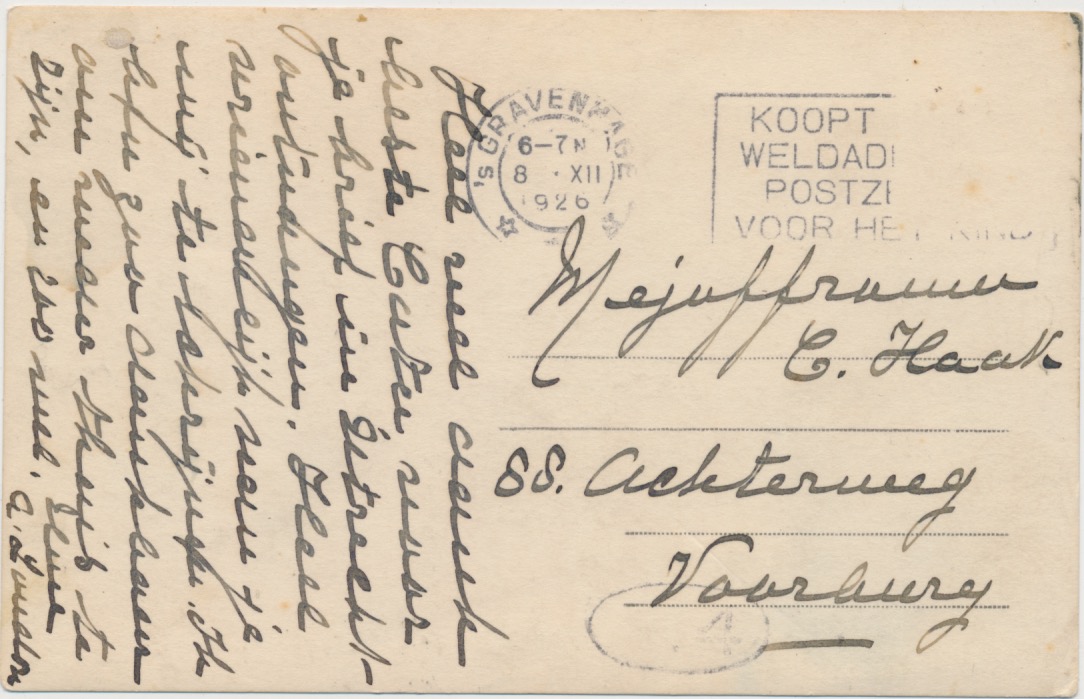 Heel veel dank
beste Corten, voor
je brief in Utrecht
ontvangen. Heel
vriendelijk van je
mij te schrijven. Ik
hoop gauw
een meer thuis te
zijn, en zoo veel.
A. Gouden
'S GRAVENHAGE
6-7N
8 XII
1926
KOOPT
WELDADI
POSTZE
VOOR HET KIND
Mejuffrouw
C. Haak
88. Achterweg
Voorburg
4